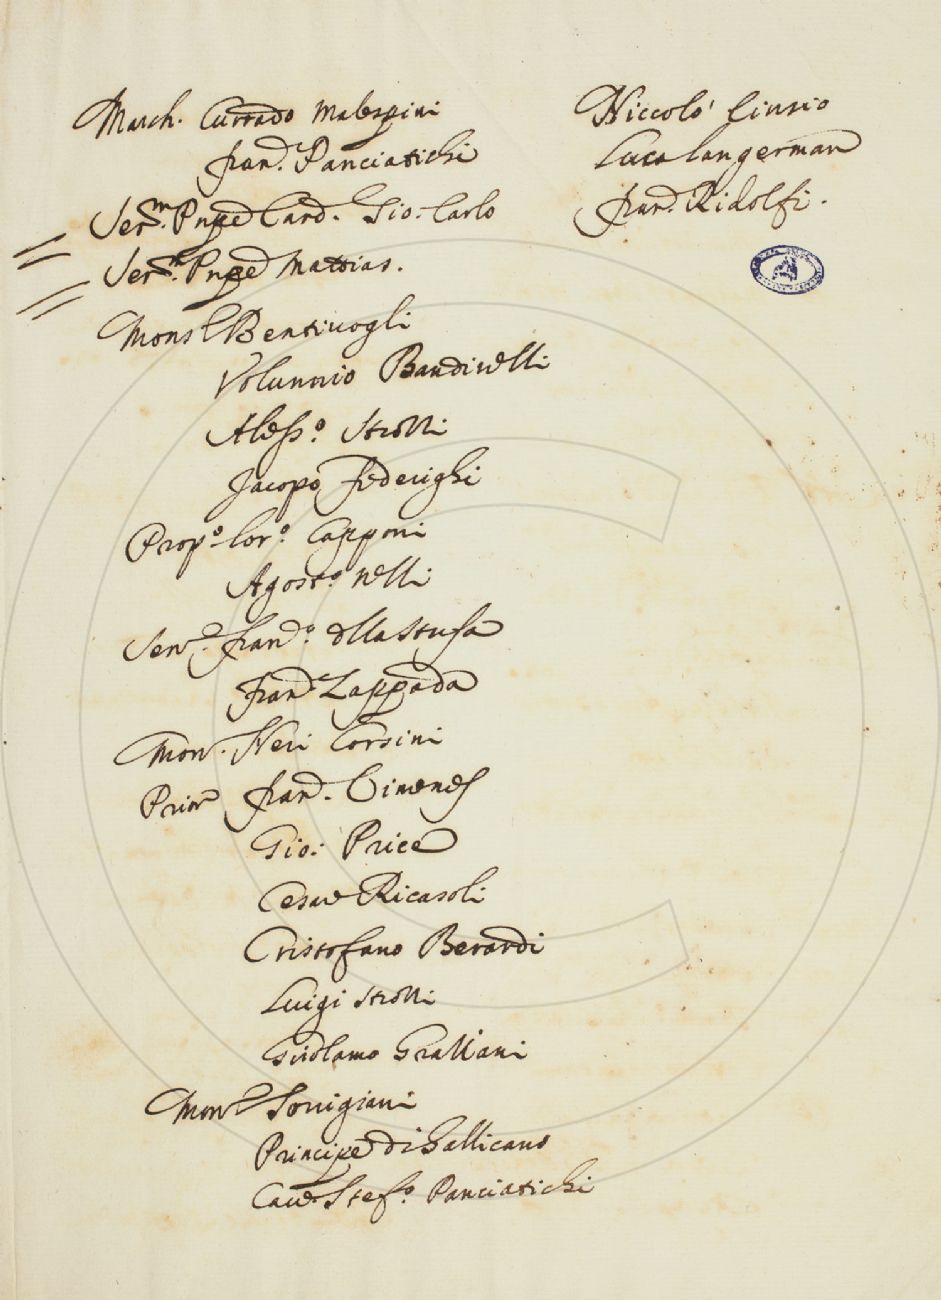 March. Currado Malespini
Fran.co Panciatichi
Ser.mo Pnpe Card. Gio: Carlo
Ser.mo Pnpe Mattias.
Mons.r Bentivogli
Volunnio Bandinelli
Aless.o Strozzi
Jacopo Federighi
Prop.o Lor.o Capponi
Agost.o Nelli
Sen.re Fran.co della Stufa
Fran.co Zappada
Mon.r Neri Corsini
Prior Fran.co Cimenes
Gio: Price
Cesare Ricasoli
Cristofano Berardi
Luigi Strozzi
Girolamo Grazzani
Mon.r
Principe di Gallicano
Cav.re Stef.o Panciatichi
Niccolò
Luca Langerman
Fran.co Ridolfi.